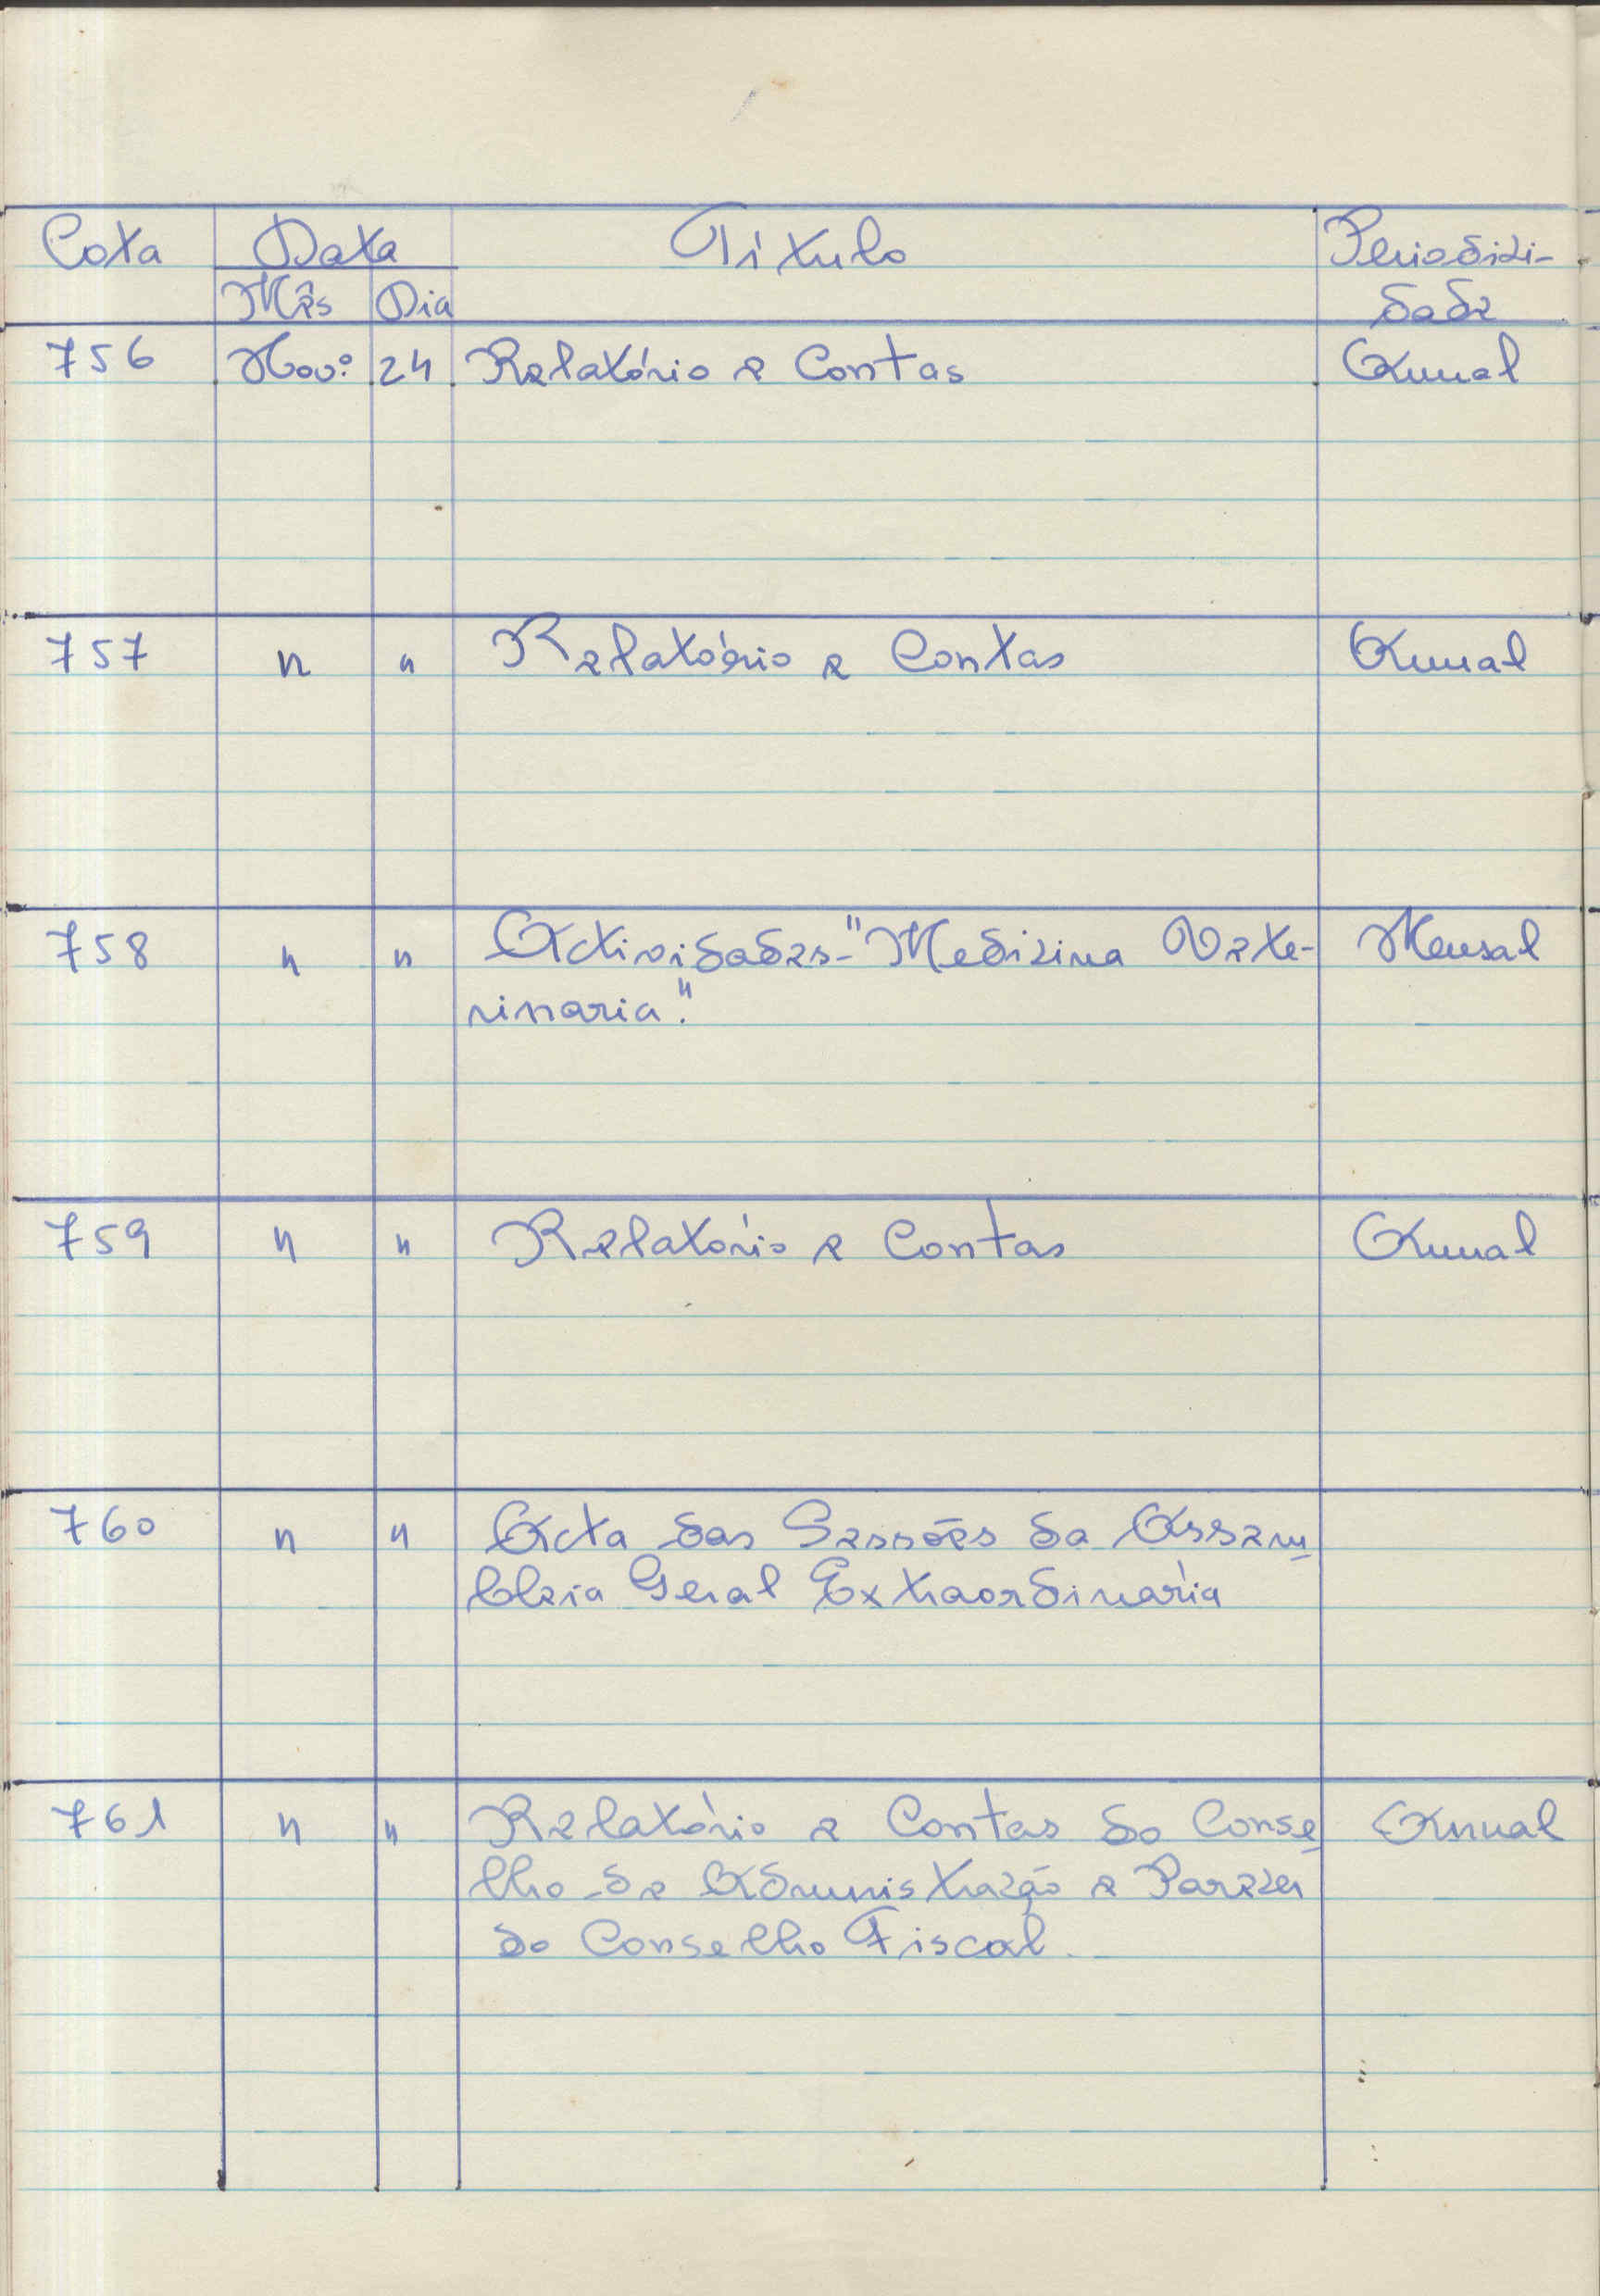 Cota Data Título Periodici-
Mês Dia dade
756 Nov.º 24 Relatório e Contas Anual
757 " " Relatório e Contas Anual
758 " " Actividades - "Medicina Vete- Mensal
rinaria".
759 " " Relatório e Contas Anual
760 " " Acta das Sessões da Assem
bleia Geral Extraordinária
761 " " Relatório e Contas do Conse Anual
lho de Administração e Parecer
do Conselho Fiscal.